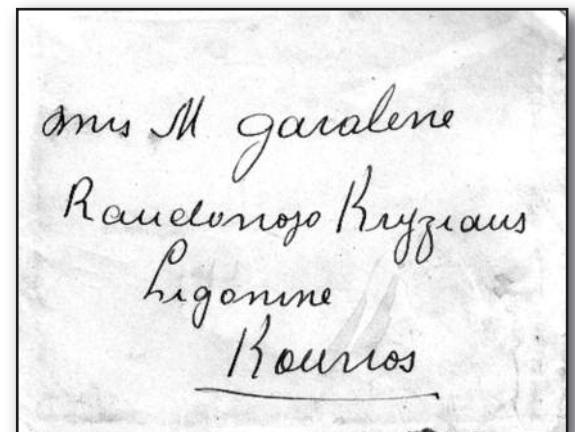 mrs M garalene
Raudonojo Kryziaus
Ligonine
Kaunos